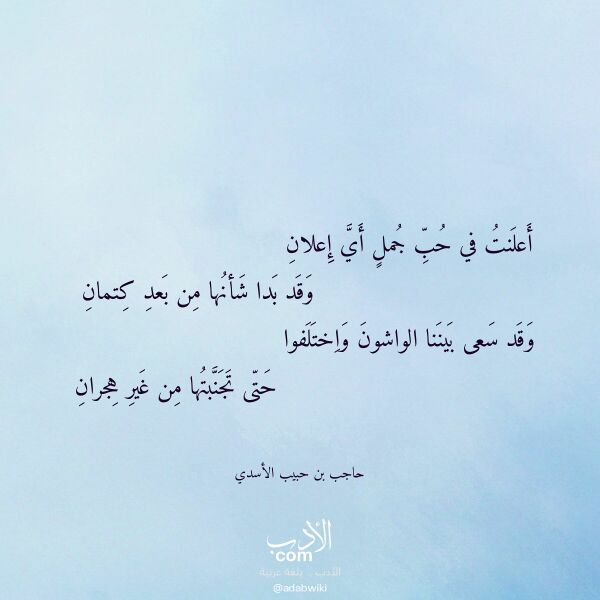 أَعلَنتُ في حُبِّ جُملٍ أَيَّ إِعلانِ
وَقَد بَدا شَأنُها مِن بَعدِ كِتمانِ
وَقَد سَعى بَينَنا الواشونَ وَاِختَلَفوا
حَتّى تَجَنَّبتُها مِن غَيرِ هِجرانِ
حاجب بن حبيب الأسدي
الأدب
com
الأدب .. بلغة عربية
@adabwiki